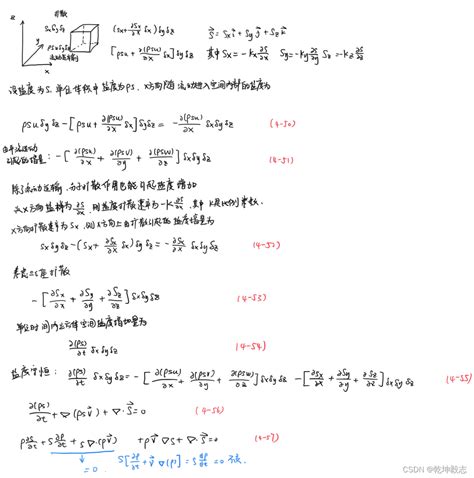 z
扩散
Sxδyδz
(Sx+∂Sx/∂x δx)δyδz
S⃗=Sx i⃗+Sy j⃗+Sz k⃗
y
ρSuδyδz
[ρsu+∂(ρsu)/∂x δx]δyδz
其中 Sx=-k∂S/∂x Sy=-k∂S/∂y Sz=-k∂S/∂z
x
设盐度为S, 单位体积中盐度为ρS, x方向随流动进入空间内部的盐度为
ρsuδyδz-[ρsu+∂(ρsu)/∂x δx]δyδz = -∂(ρsu)/∂x δxδyδz (4-50)
-[∂(ρsu)/∂x+∂(ρsv)/∂y+∂(ρsw)/∂z]δxδyδz (4-51)
除了流动运输, 分子扩散作用也能引起盐度增加
x方向扩散率为Sx, 则x方向上由扩散引起的盐度增量为
Sxδyδz-(Sx+∂Sx/∂x δx)δyδz=-∂Sx/∂x δxδyδz (4-52)
考虑三维扩散
-[∂Sx/∂x+∂Sy/∂y+∂Sz/∂z]δxδyδz (4-53)
单位时间内立方体空间盐度增加量为
∂(ρs)/∂t δxδyδz (4-54)
盐度守恒: ∂(ρs)/∂t δxδyδz=-[∂(ρsu)/∂x+∂(ρsv)/∂y+∂(ρsw)/∂z]δxδyδz -[∂Sx/∂x+∂Sy/∂y+∂Sz/∂z]δxδyδz (4-55)
∂(ρs)/∂t+∇(ρsv⃗)+∇·S⃗=0 (4-56)
ρ∂S/∂t+S∂ρ/∂t+S∇·(ρv⃗) +ρv⃗∇S+∇·S⃗=0 (4-57)
=0 S[∂ρ/∂t+v⃗∇ρ]=S dρ/dt=0
CSDN @乾坤毅志